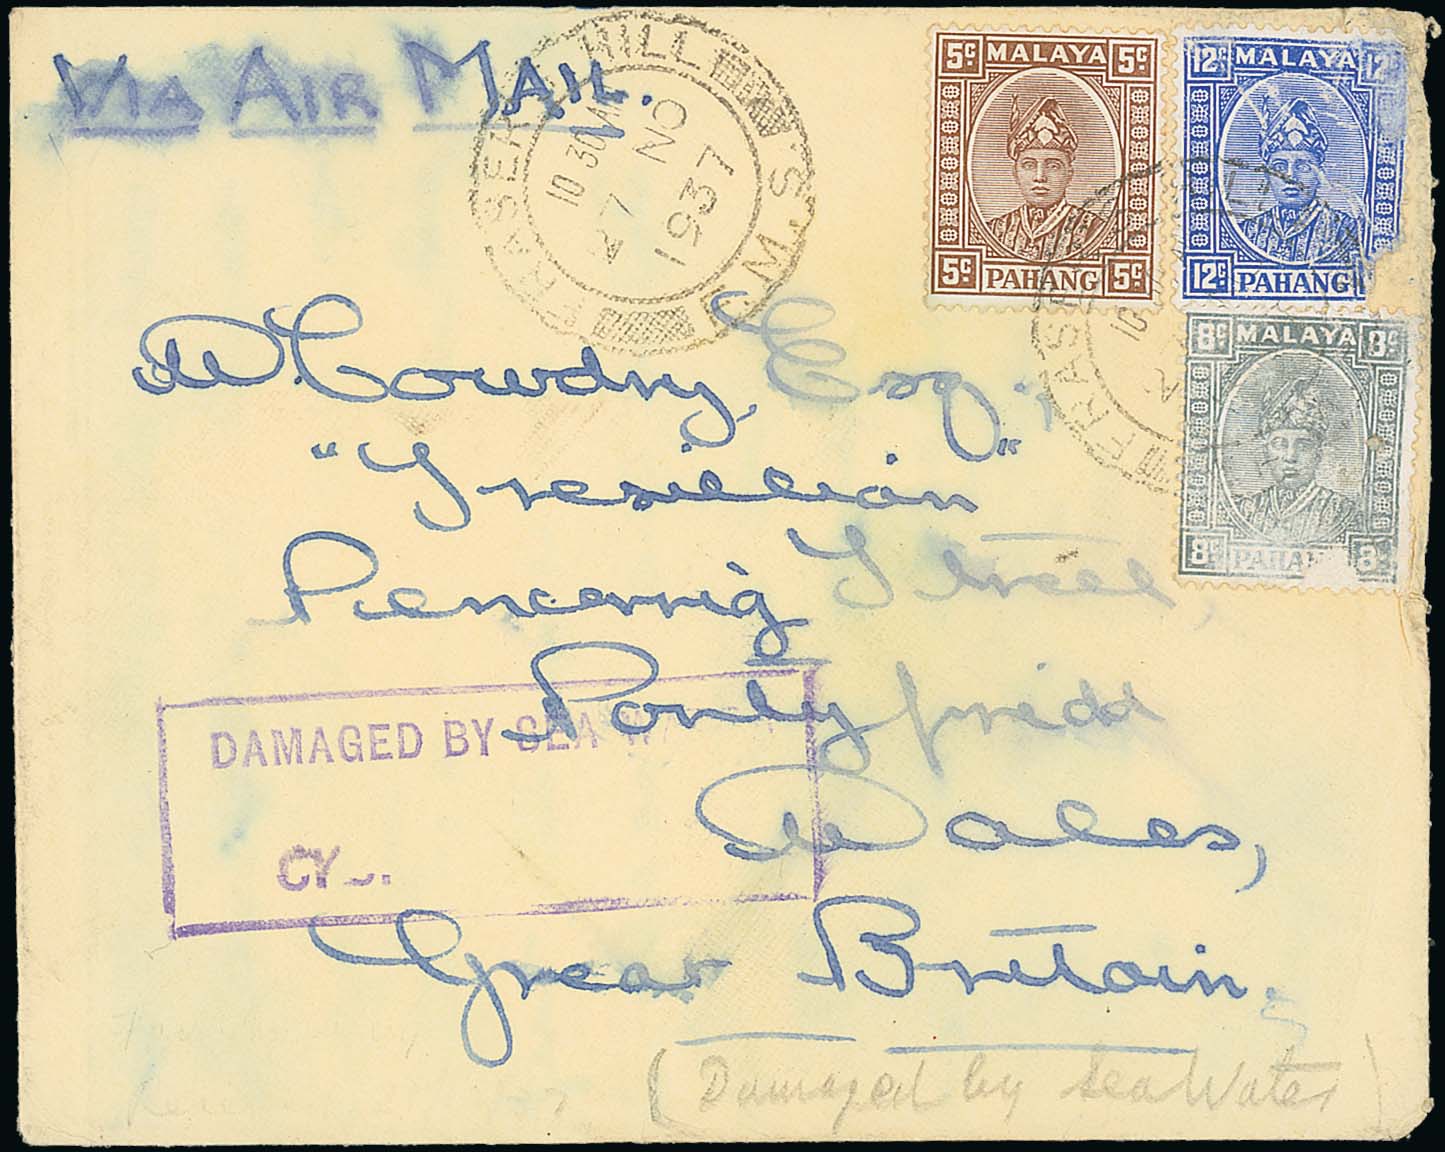 VIA AIR MAIL.
FRASER'S HILL
F.M.S.
10 30AM
27 NO
1937
5c MALAYA 5c
5c PAHANG 5c
12c MALAYA 12c
12c PAHANG
8c MALAYA 8c
8c PAHANG 8c
W. Cowdry, Esq.,
"Tresillian"
Pencerrig Street,
Pontypridd
Wales,
Great Britain.
DAMAGED BY SEA WATER
(Damaged by Sea Water)